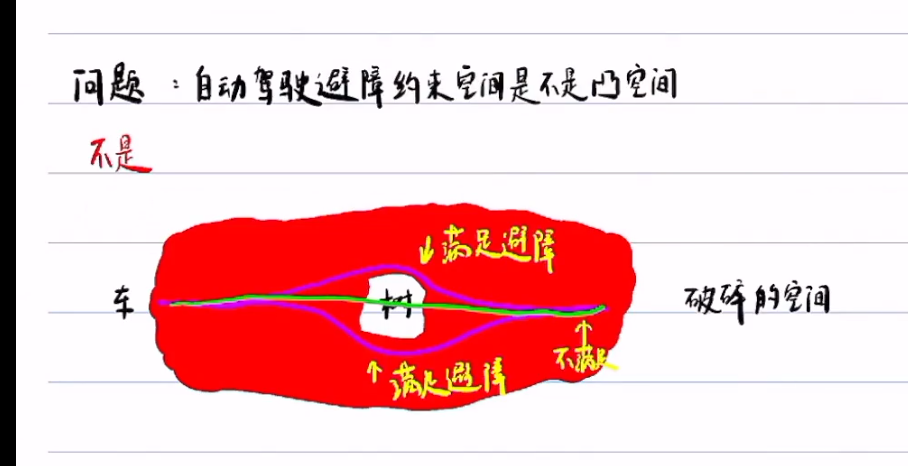 问题：自动驾驶避障约束空间是不是凸空间
不是
↓满足避障
车
树
破碎的空间
↑
不满足
↑满足避障